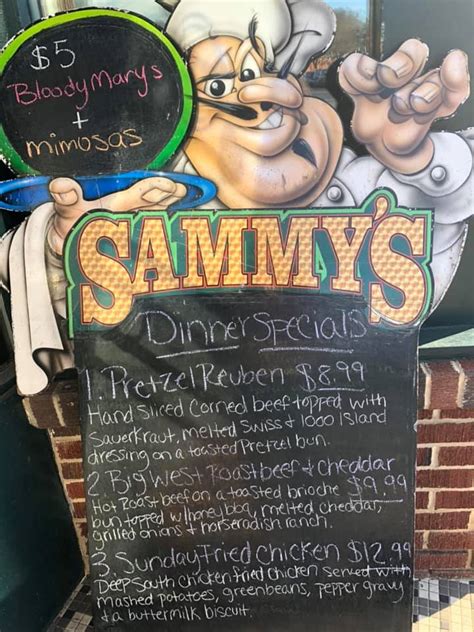 $5
Bloody Marys
+
mimosas
SAMMY'S
Dinner Specials
1. Pretzel Reuben $8.99
Hand Sliced Corned beef topped with
Sauerkraut, melted Swiss & 1000 Island
dressing on a toasted Pretzel bun.
2 Big West Roast beef & cheddar
Hot Roast beef on a toasted brioche $9.99
bun topped w/ honey bbq, melted cheddar,
grilled onions & horseradish ranch.
3. Sunday Fried Chicken $12.99
Deep South chicken fried chicken served with
mashed potatoes, greenbeans, pepper gravy
& a buttermilk biscuit.